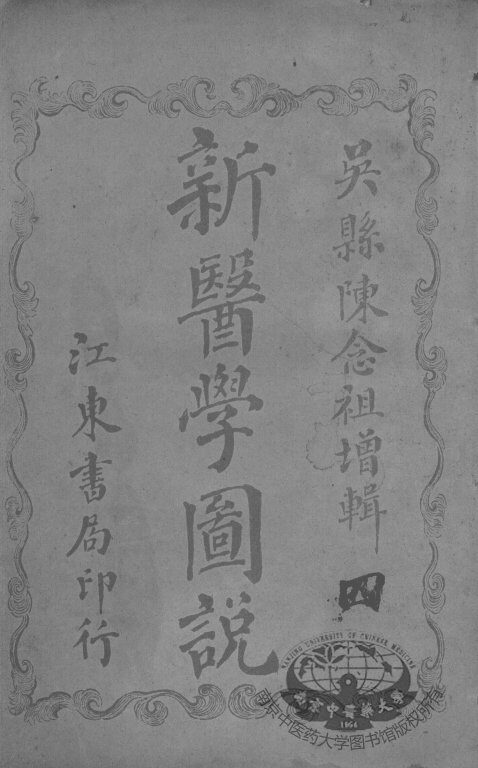 吳縣陳念祖增輯
四
新醫學圖說
江東書局印行
NANJING UNIVERSITY OF CHINESE MEDICINE
南京中醫藥大學
1954
南京中医药大学图书馆版权所有